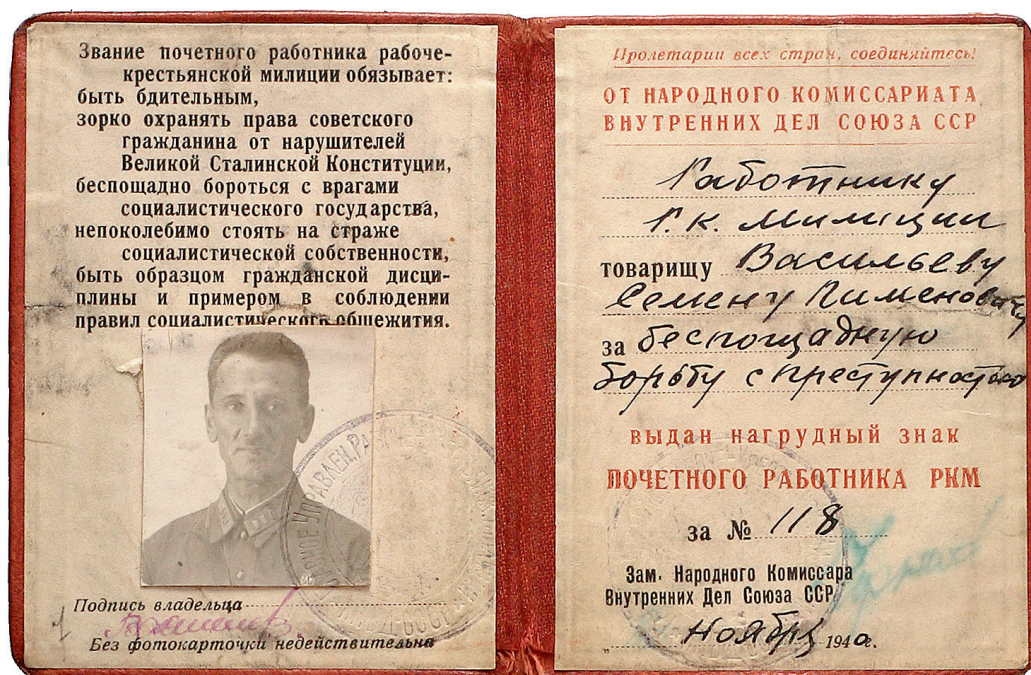 Звание почетного работника рабоче-
крестьянской милиции обязывает:
быть бдительным,
зорко охранять права советского
гражданина от нарушителей
Великой Сталинской Конституции,
беспощадно бороться с врагами
социалистического государства,
непоколебимо стоять на страже
социалистической собственности,
быть образцом гражданской дисци-
плины и примером в соблюдении
правил социалистического общежития.
Подпись владельца
Без фотокарточки недействительна
Пролетарии всех стран, соединяйтесь!
ОТ НАРОДНОГО КОМИССАРИАТА
ВНУТРЕННИХ ДЕЛ СОЮЗА ССР
Работнику
Р.К. Милиции
товарищу Васильеву
Семену Пименовичу
за беспощадную
борьбу с преступностью
выдан нагрудный знак
ПОЧЕТНОГО РАБОТНИКА РКМ
за № 118
Зам. Народного Комиссара
Внутренних Дел Союза ССР
„ Ноября 1940г.